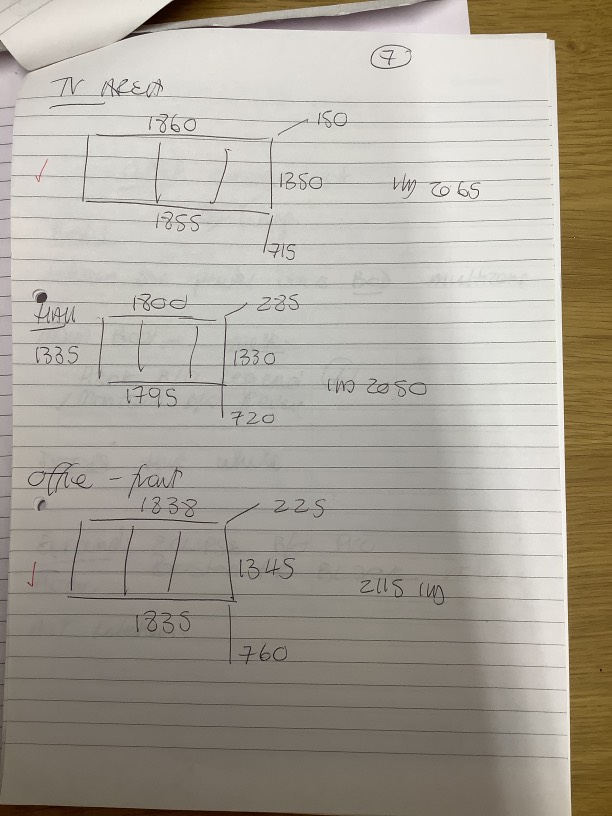 7
TV AREA
1860
150
1350
2065
1855
715
HALL
1800
285
1335
1330
2050
1795
720
Office - front
1838
225
1345
2115
1835
760